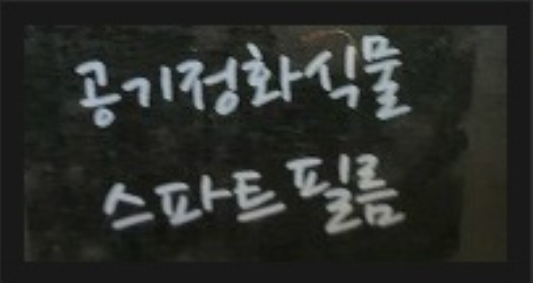 공기정화식물
스파트필름